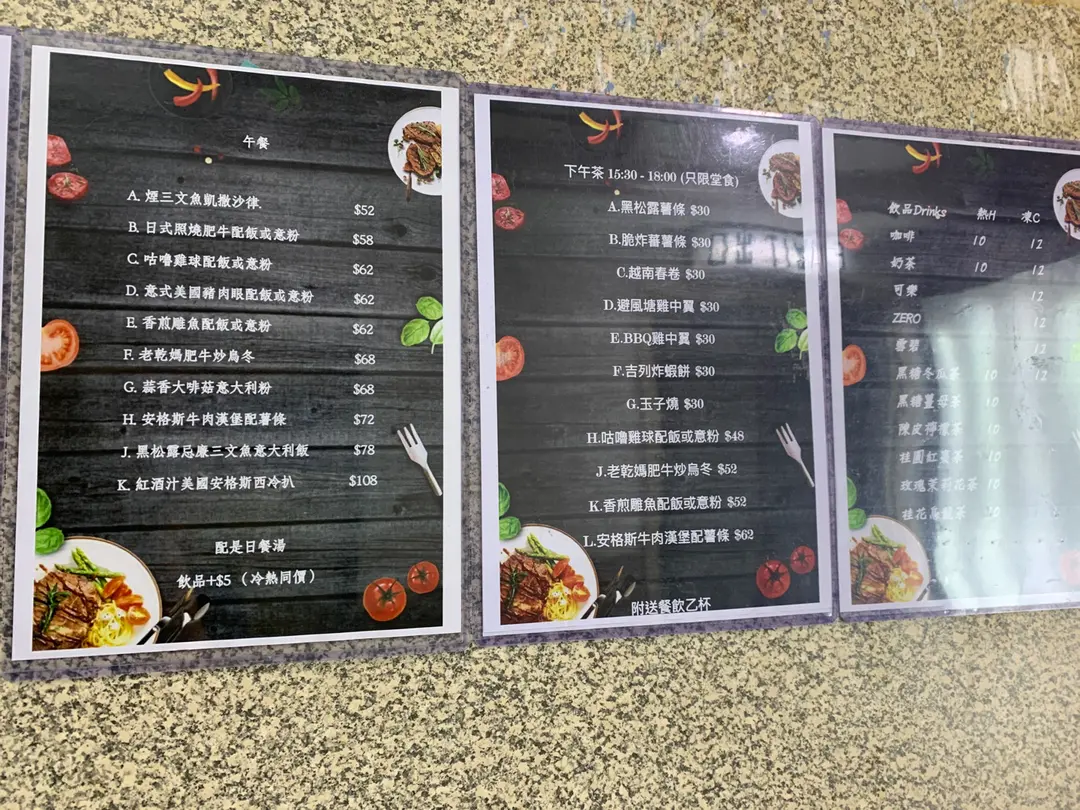 午餐
A. 煙三文魚凱撒沙律 $52
B. 日式照燒肥牛配飯或意粉 $58
C. 咕嚕雞球配飯或意粉 $62
D. 意式美國豬肉眼配飯或意粉 $62
E. 香煎雕魚配飯或意粉 $62
F. 老乾媽肥牛炒烏冬 $68
G. 蒜香大啡菇意大利粉 $68
H. 安格斯牛肉漢堡配薯條 $72
J. 黑松露忌廉三文魚意大利飯 $78
K. 紅酒汁美國安格斯西冷扒 $108
配是日餐湯
飲品+$5 （冷熱同價）
下午茶 15:30 - 18:00 (只限堂食)
A.黑松露薯條 $30
B.脆炸蕃薯條 $30
C.越南春卷 $30
D.避風塘雞中翼 $30
E.BBQ雞中翼 $30
F.吉列炸蝦餅 $30
G.玉子燒 $30
H.咕嚕雞球配飯或意粉 $48
J.老乾媽肥牛炒烏冬 $52
K.香煎雕魚配飯或意粉 $52
L.安格斯牛肉漢堡配薯條 $62
附送餐飲乙杯
飲品Drinks 熱H 凍C
咖啡 10 12
奶茶 10 12
可樂 12
ZERO 12
雪碧 12
黑糖冬瓜茶 10 12
黑糖薑母茶 10
陳皮檸檬茶 10
桂圓紅棗茶 10
玫瑰茉莉花茶 10
桂花烏龍茶 10